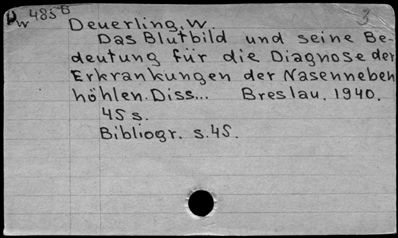 Dw 485B
3
Deuerling, W.
Das Blutbild und seine Be-
deutung für die Diagnose der
Erkrankungen der Nasenneben
höhlen. Diss... Breslau. 1940.
45 s.
Bibliogr. s. 45.